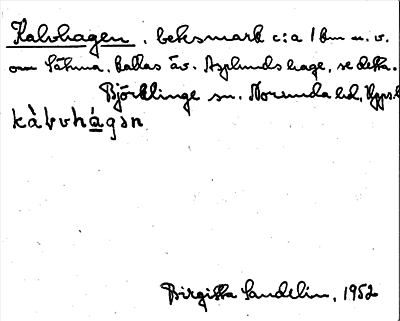 Kalvhagen, beksmark c:a 1 km n.v.
om Sätuna, kallas äv. Asplunds hage, se detta.
Björklinge sn. Norunda hd, Upps.l
kàlvhágən
Birgitta Sandelin, 1952